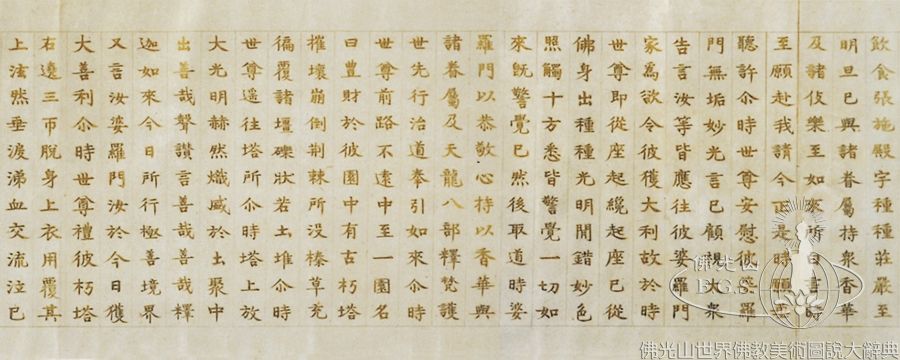 飲食張施殿宇種種莊嚴至
明旦已與諸眷屬持衆香華
及諸伎樂至如來所白言時
至願赴我請今正是時願垂
聽許尒時世尊安慰彼婆羅
門無垢妙光言已顧視大衆
告言汝等皆應往彼婆羅門
家為欲令彼獲大利故於時
世尊即從座起纔起座已從
佛身出種種光明間錯妙色
照觸十方悉皆警覺一切如
來旣警覺已然後取道時婆
羅門以恭敬心持以香華與
諸眷屬及天龍八部釋梵護
世先行治道奉引如來尒時
世尊前路不遠中至一園名
曰豊財於彼園中有古朽塔
摧壞崩倒荆棘所沒榛草充
徧覆諸壃礫狀若土堆尒時
世尊逕往塔所尒時塔上放
大光明赫然熾盛於土聚中
出善哉聲讚言善哉善哉釋
迦如來今日所行極善境界
又言汝婆羅門汝於今日獲
大善利尒時世尊禮彼朽塔
右遶三帀脫身上衣用覆其
上泫然垂淚涕血交流泣已
佛光山
F.G.S.
佛光山世界佛教美術圖說大辭典